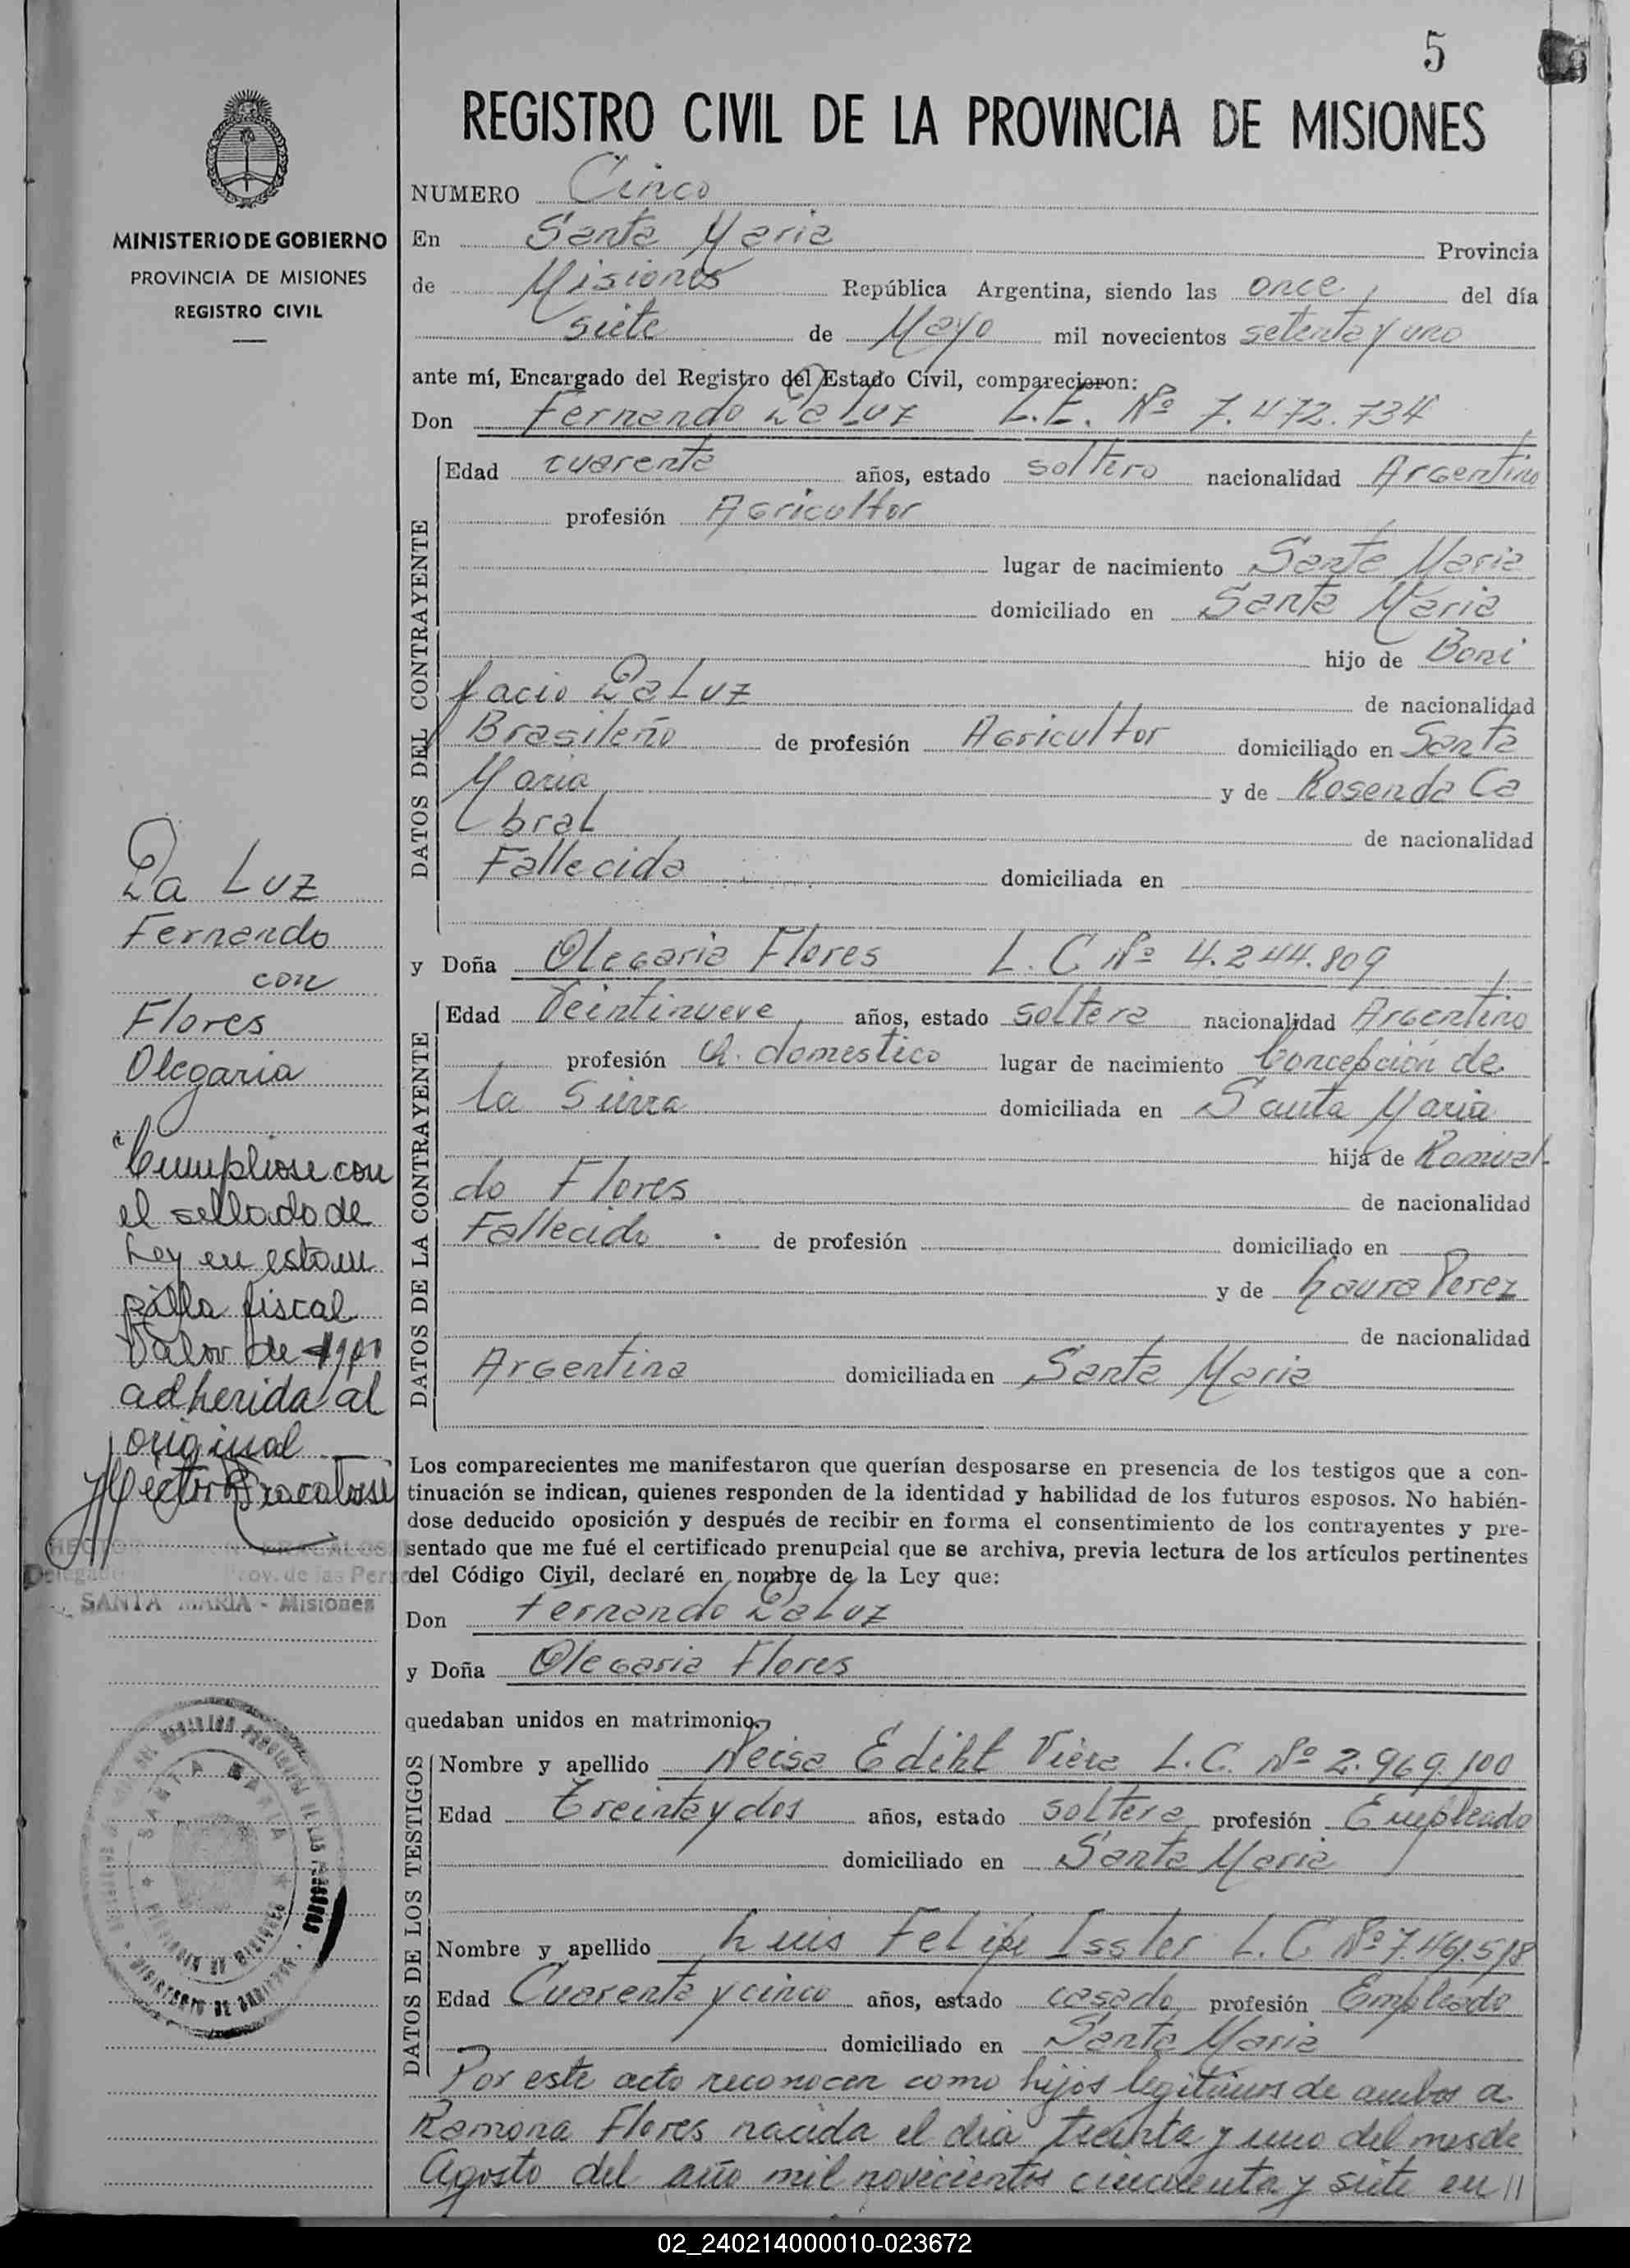 5
REGISTRO CIVIL DE LA PROVINCIA DE MISIONES
MINISTERIO DE GOBIERNO
PROVINCIA DE MISIONES
REGISTRO CIVIL
NUMERO Cinco
En Santa Maria Provincia
de Misiones República Argentina, siendo las once del día
siete de Mayo mil novecientos setenta y uno
ante mí, Encargado del Registro del Estado Civil, comparecieron:
Don Fernando Da Luz L.E. Nº 7.472.734
DATOS DEL CONTRAYENTE
Edad cuarenta años, estado soltero nacionalidad Argentino
profesión Agricultor
lugar de nacimiento Santa Maria
domiciliado en Santa Maria
hijo de Boni
facio Da Luz de nacionalidad
Brasileño de profesión Agricultor domiciliado en Santa
Maria y de Rosenda Ca
bral de nacionalidad
Fallecida domiciliada en
y Doña Olegaria Flores L.C Nº 4.244.809
DATOS DE LA CONTRAYENTE
Edad Veintinueve años, estado soltera nacionalidad Argentina
profesión Q. domestico lugar de nacimiento Concepción de
la Sierra domiciliada en Santa Maria
hija de Romual-
do Flores de nacionalidad
Fallecido de profesión domiciliado en
y de Laura Perez
de nacionalidad
Argentina domiciliada en Santa Maria
Da Luz
Fernando
con
Flores
Olegaria
"Cumpliose con
el sellado de
Ley en estam
pilla fiscal
Valor de
adherida al
original
Hector Fracalossi
HECTOR FRACALOSSI
Delegado Prov. de las Pers
SANTA MARIA - Misiones
Los comparecientes me manifestaron que querían desposarse en presencia de los testigos que a con-
tinuación se indican, quienes responden de la identidad y habilidad de los futuros esposos. No habién-
dose deducido oposición y después de recibir en forma el consentimiento de los contrayentes y pre-
sentado que me fué el certificado prenupcial que se archiva, previa lectura de los artículos pertinentes
del Código Civil, declaré en nombre de la Ley que:
Don Fernando Da Luz
y Doña Olegaria Flores
quedaban unidos en matrimonio.
DATOS DE LOS TESTIGOS
Nombre y apellido Neisa Ediht Viera L.C. Nº 2.969.100
Edad Treinta y dos años, estado soltera profesión Empleado
domiciliado en Santa Maria
Nombre y apellido Luis Felipe Issler L.C Nº 7.461.518
Edad Cuarenta y cinco años, estado casado profesión Empleado
domiciliado en Santa Maria
Por este acto reconocen como hijos legitimos de ambos a
Ramona Flores nacida el dia treinta y uno del mes de
Agosto del año mil novecientos cincuenta y siete en //
SANTA MARIA
MINISTERIO DE GOBIERNO
02_240214000010-023672